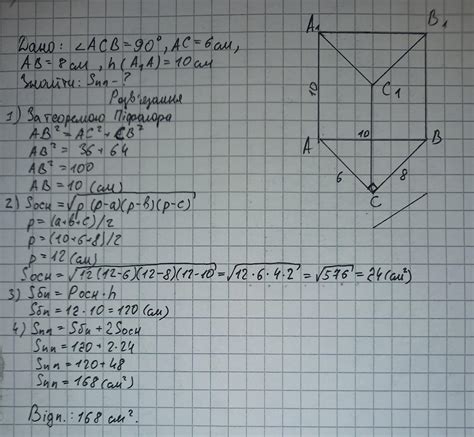 Дано: ∠ACB=90°, AC=6см,
AB=8см, h(A₁A)=10см
Знайти: Sпп-?
Розв'язання
1) За теоремою Піфагора
AB²=AC²+CB²
AB²=36+64
AB²=100
AB=10(см)
2) Sосн=√p(p-a)(p-b)(p-c)
p=(a+b+c)/2
p=(10+6+8)/2
p=12(см)
Sосн=√12(12-6)(12-8)(12-10=√12·6·4·2=√576=24(см²)
3) Sбп=Pосн·h
Sбп=12·10=120(см)
4) Sпп=Sбп+2Sосн
Sпп=120+2·24
Sпп=120+48
Sпп=168(см²)
Відп.:168см².
A₁
B₁
C₁
10
A
10
B
6
8
C